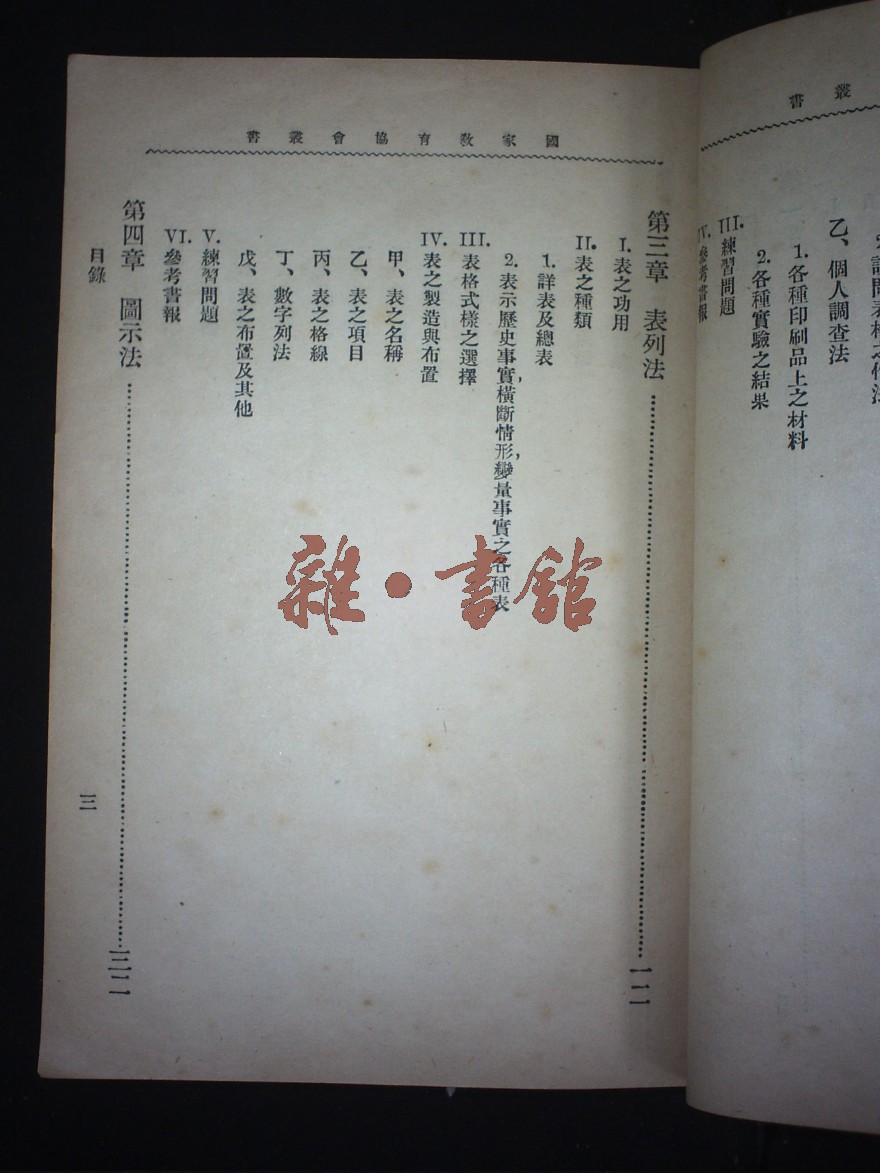 叢書
乙、個人調查法
1. 各種印刷品上之材料
2. 各種實驗之結果
III. 練習問題
IV. 參考書報
國家教育協會叢書
第三章 表列法
I. 表之功用
II. 表之種類
1. 詳表及總表
2. 表示歷史事實，橫斷情形，變量事實之各種表
III. 表格式樣之選擇
IV. 表之製造與布置
甲、表之名稱
乙、表之項目
丙、表之格線
丁、數字列法
戊、表之布置及其他
V. 練習問題
VI. 參考書報
第四章 圖示法
目錄
三
雜·書館